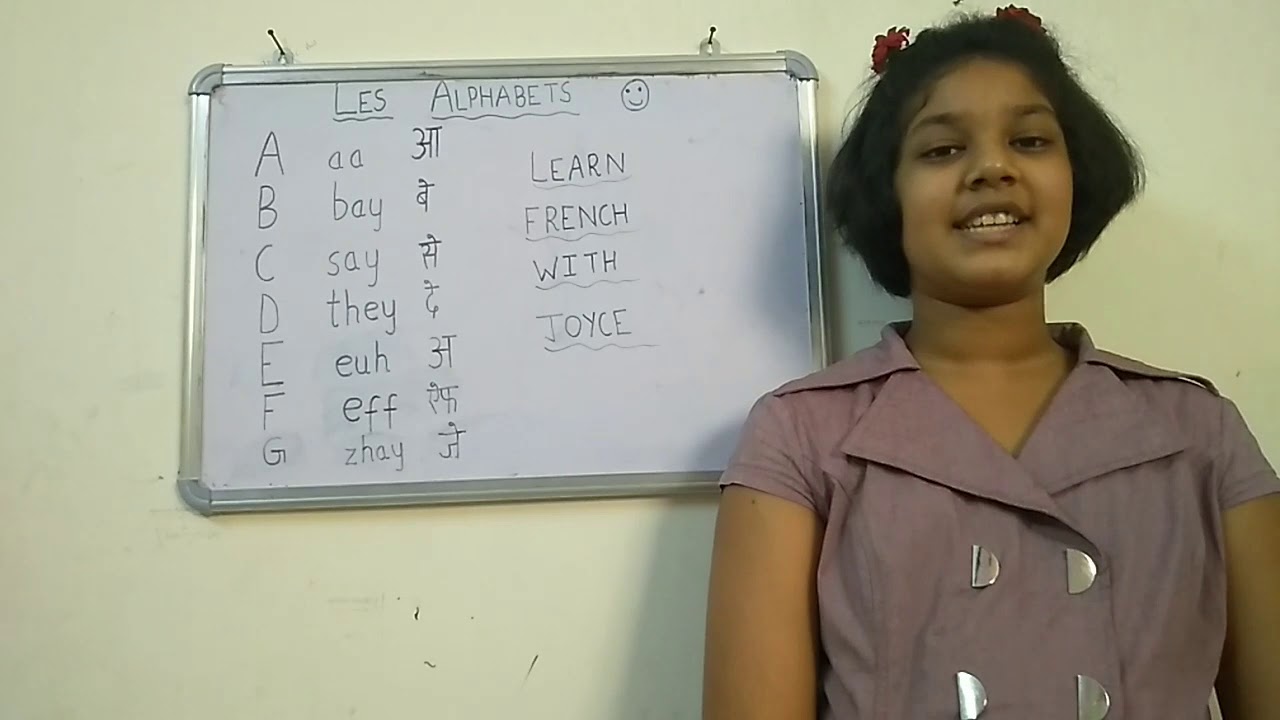 LES ALPHABETS
A aa आ
B bay बे
C say से
D they दे
E euh अ
F eff ऐफ
G zhay जे
LEARN
FRENCH
WITH
JOYCE